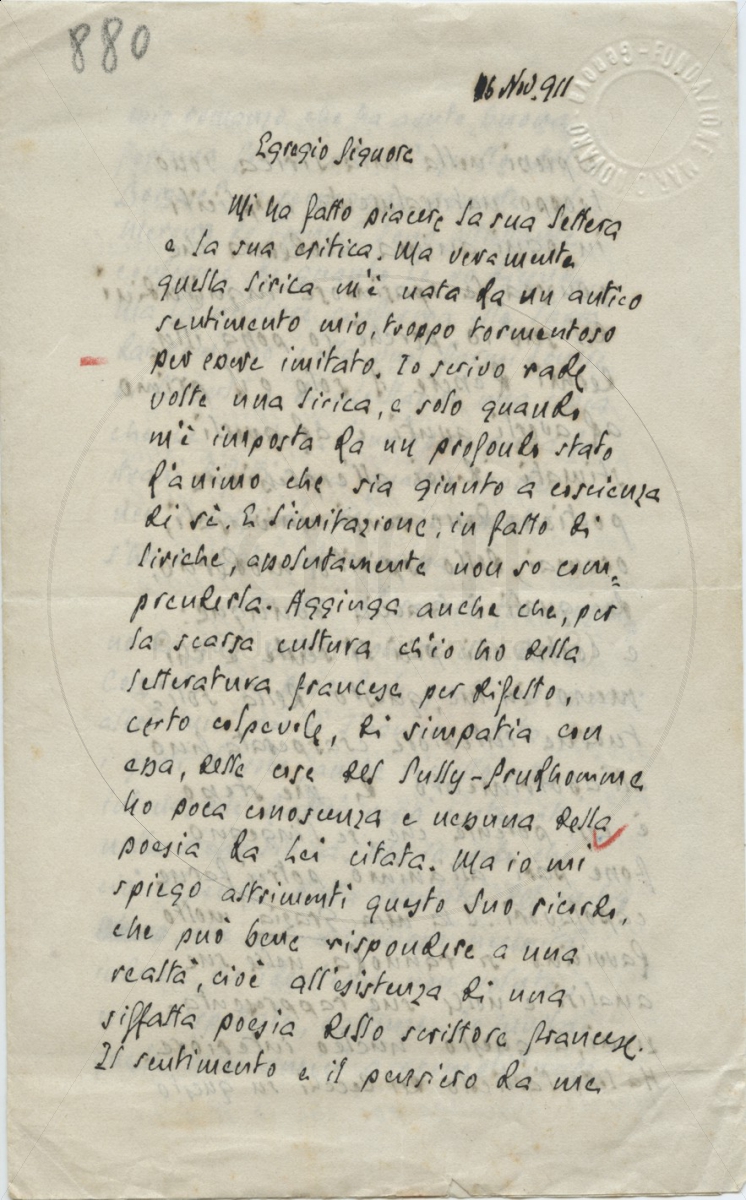 880
16 Nov. 911
FONDAZIONE MARINO MORETTI
Egregio Signore
Mi ha fatto piacere la sua lettera
e la sua critica. Ma veramente
quella lirica m'è nata da un antico
sentimento mio, troppo tormentoso
per essere imitato. Io scrivo rade
volte una lirica, e solo quando
m'è imposta da un profondo stato
d'animo che sia giunto a coscienza
di sè. E l'imitazione, in fatto di
liriche, assolutamente non so com=
prenderla. Aggiunga anche che, per
la scarsa cultura ch'io ho della
letteratura francese per difetto,
certo colpevole, di simpatia con
essa, delle cose del Sully-Prudhomme
ho poca conoscenza e nessuna della
poesia da Lei citata. Ma io mi
spiego altrimenti questo Suo ricordo,
che può bene rispondere a una
realtà, cioè all'esistenza di una
siffatta poesia dello scrittore francese.
Il sentimento e il pensiero da me